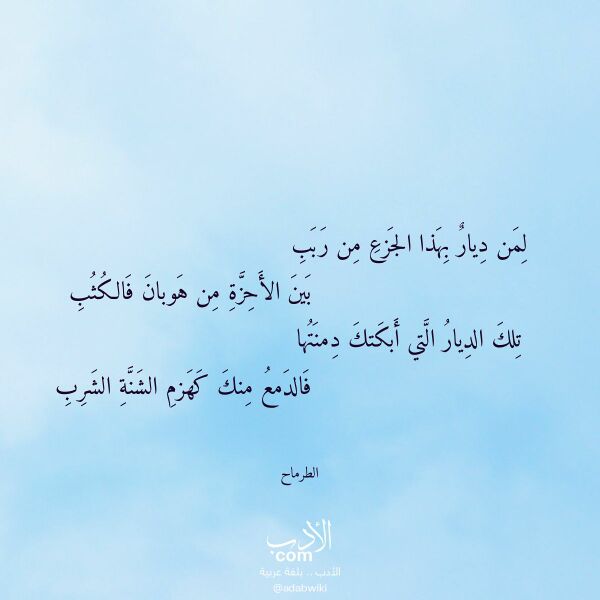 لِمَن دِيارٌ بِهَذا الجَزعِ مِن رَبَبِ
بَينَ الأَحِزَّةِ مِن هَوبانَ فَالكُثُبِ
تِلكَ الدِيارُ الَّتي أَبكَتكَ دِمنَتُها
فَالدَمعُ مِنكَ كَهَزمِ الشَنَّةِ الشَرِبِ
الطرماح
الأدب
com
الأدب .. بلغة عربية
@adabwiki